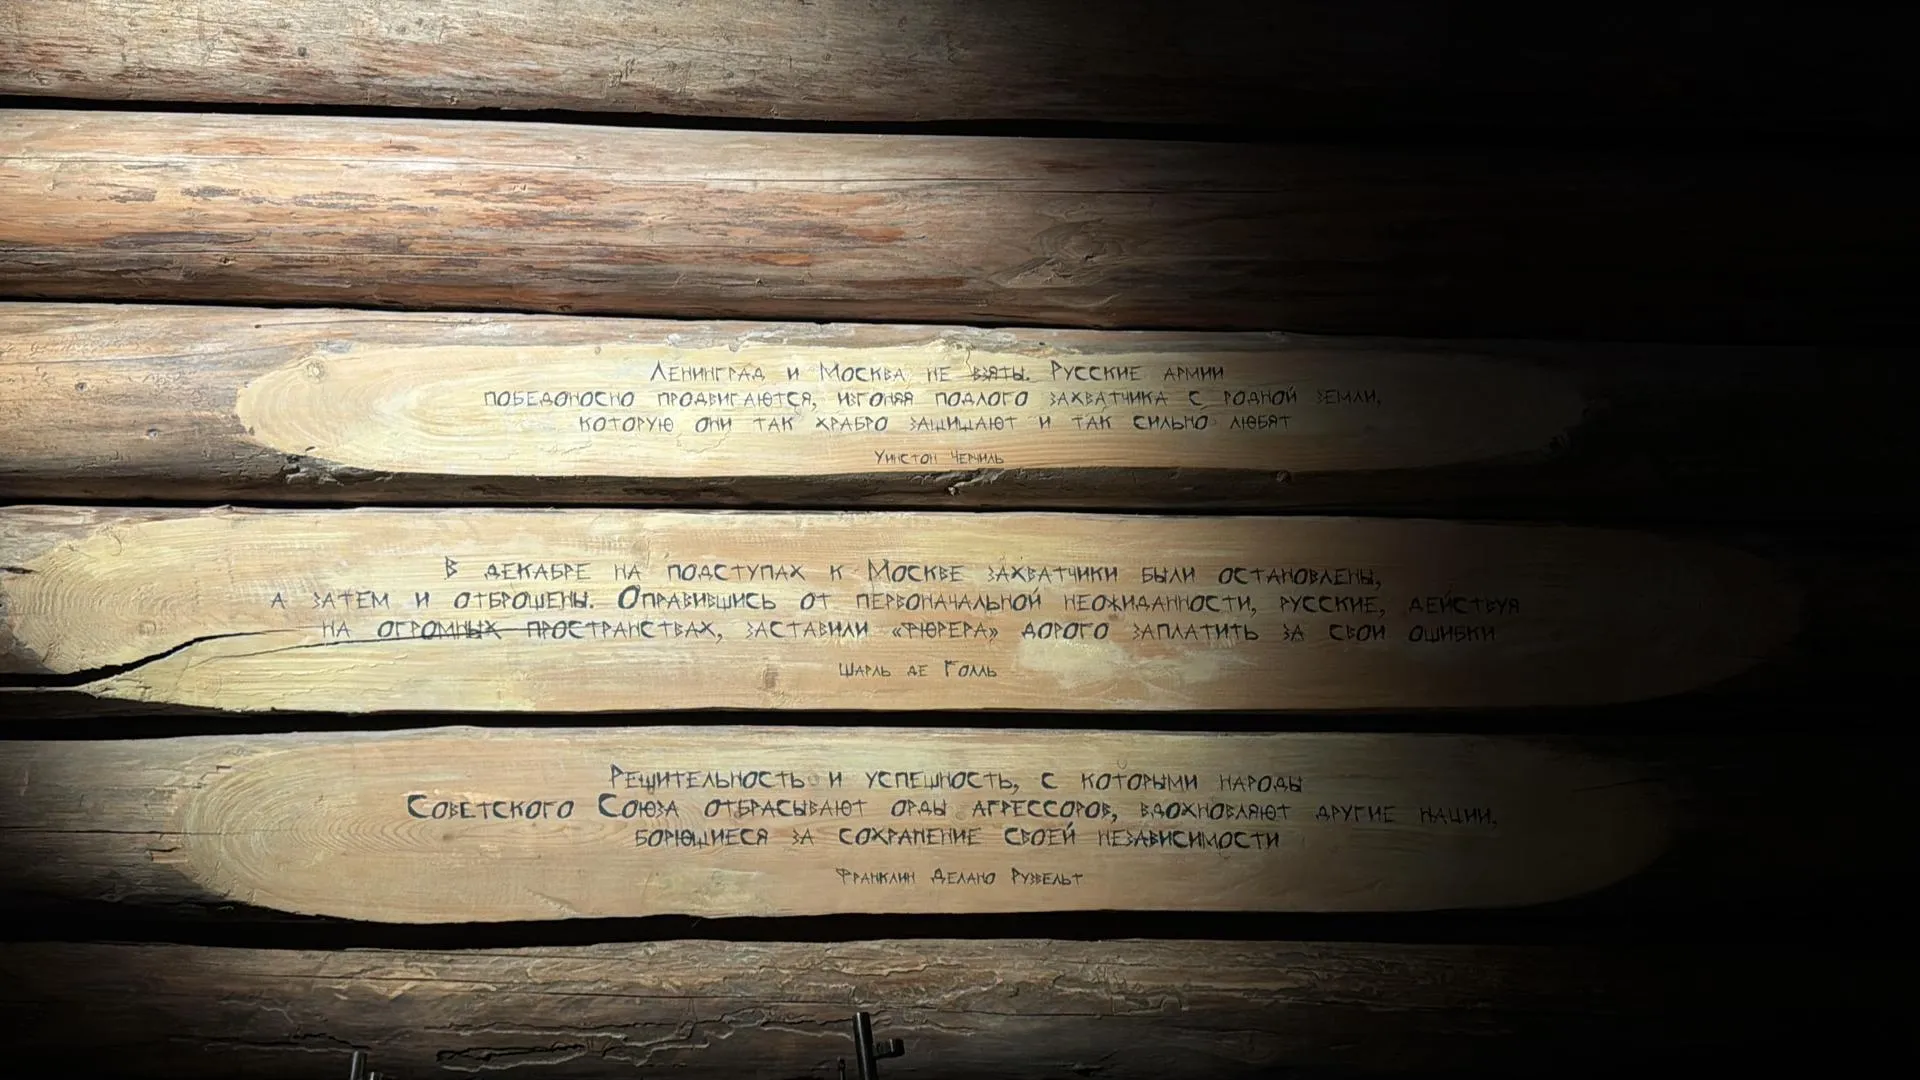 Ленинград и Москва не взяты. Русские армии
победоносно продвигаются, изгоняя подлого захватчика с родной земли,
которую они так храбро защищают и так сильно любят
Уинстон Черчиль
В декабре на подступах к Москве захватчики были остановлены,
а затем и отброшены. Оправившись от первоначальной неожиданности, русские, действуя
на огромных пространствах, заставили «фюрера» дорого заплатить за свои ошибки
Шарль де Голль
Решительность и успешность, с которыми народы
Советского Союза отбрасывают орды агрессоров, вдохновляют другие нации,
борющиеся за сохранение своей независимости
Франклин Делано Рузвельт